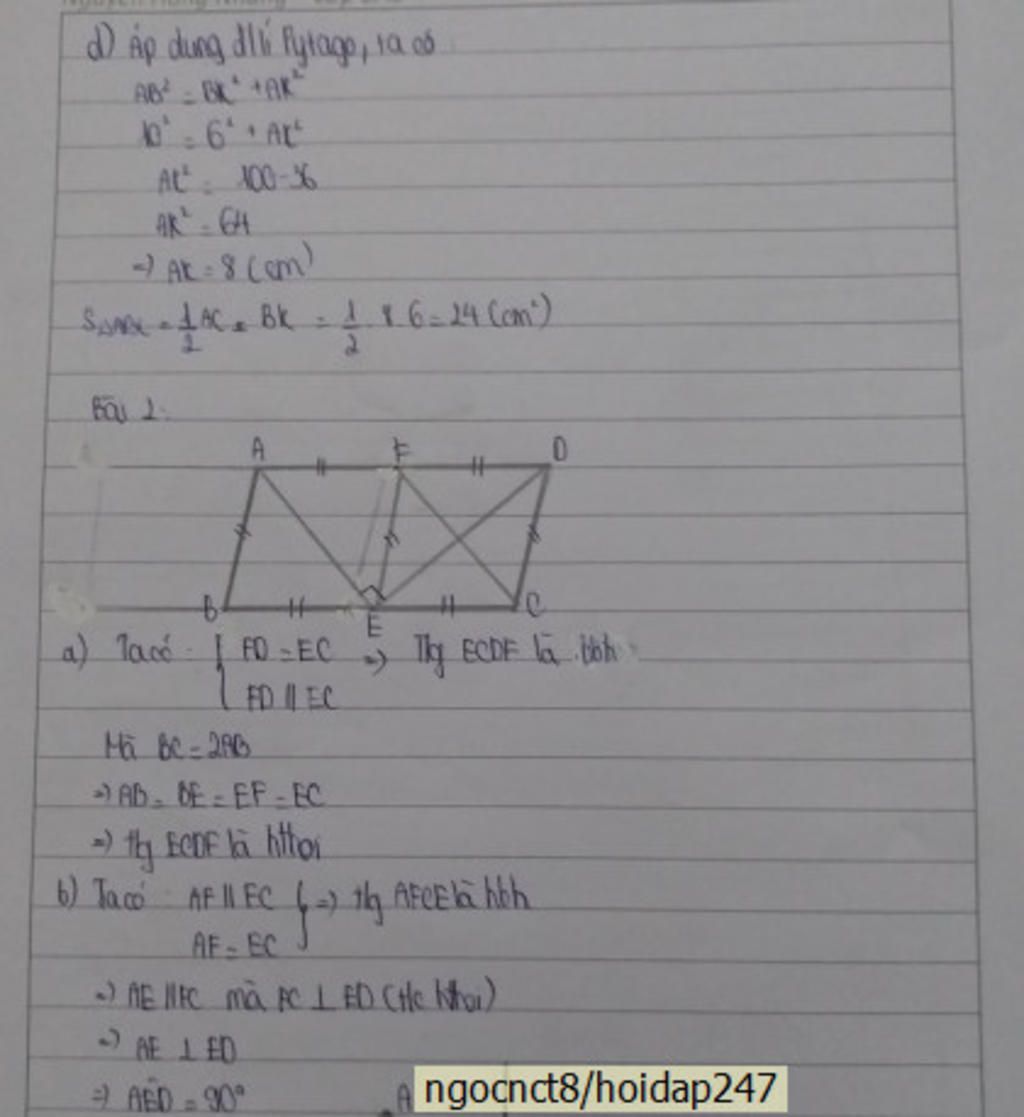 d) Áp dụng đlí Pytago, ta có
AB² = BK² + AK²
10² = 6² + AK²
AK² = 100-36
AK² = 64
=> AK = 8 (cm)
= 1/2 AC . BK = 1/2 . 8 . 6 = 24 (cm²)
Bài 2:
A F D
B E C
a) Ta có: { FD = EC => Tg ECDF là hbh
FD // EC
Mà BC = 2AB
=> AB = BE = EF = EC
=> tg ECDF là hthoi
b) Ta có: AF // EC } => tg AFCE là hbh
AF = EC
=> AE // FC mà FC ⊥ ED (t/c hthoi)
=> AE ⊥ ED
=> AÊD = 90°
A
ngocnct8/hoidap247